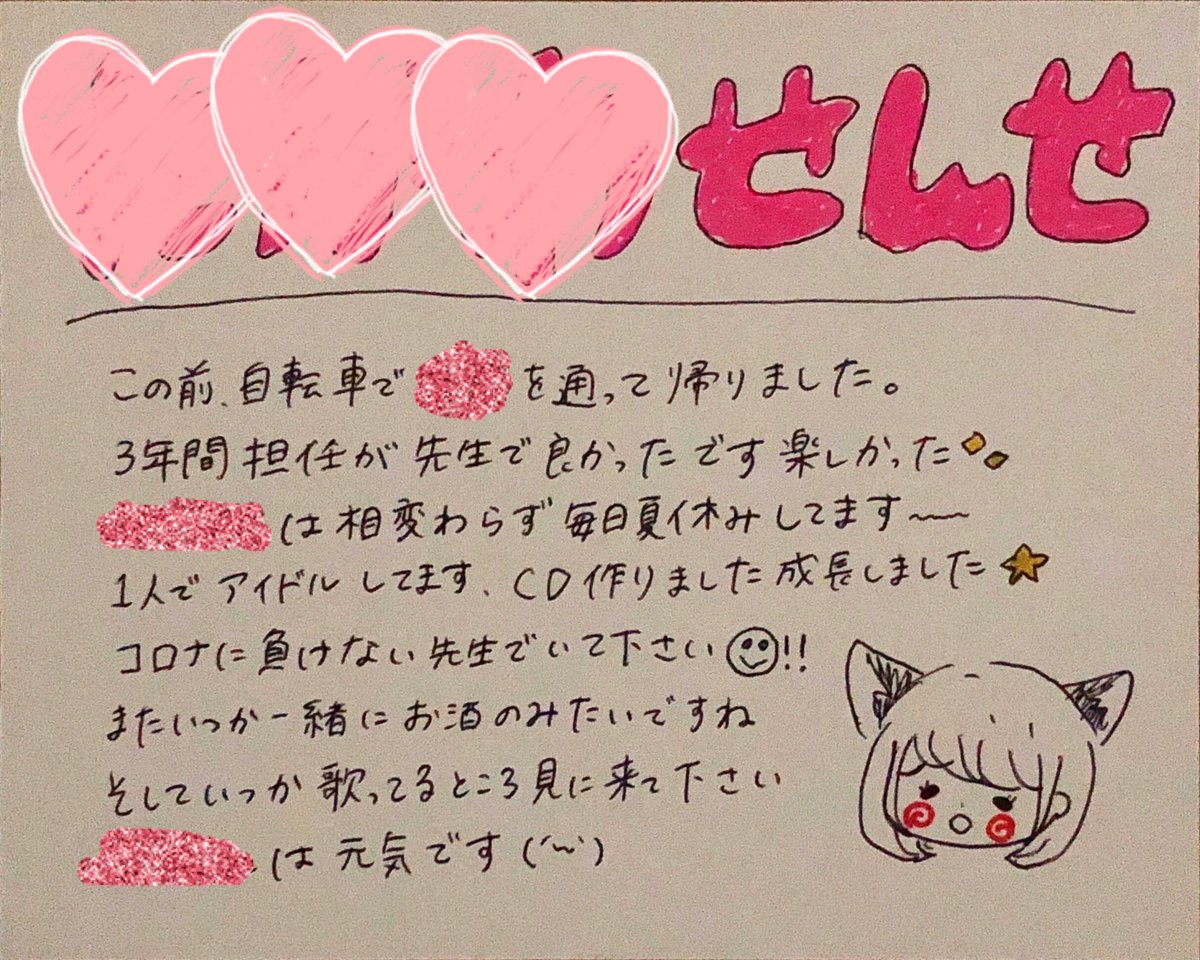 せんせ
この前、自転車で を通って帰りました。
3年間担任が先生で良かったです楽しかった
は相変わらず毎日夏休みしてます〜
1人でアイドルしてます、CD作りました成長しました
コロナに負けない先生でいて下さい!!
またいつか一緒にお酒のみたいですね
そしていつか歌ってるところ見に来て下さい
は元気です(´〜`)